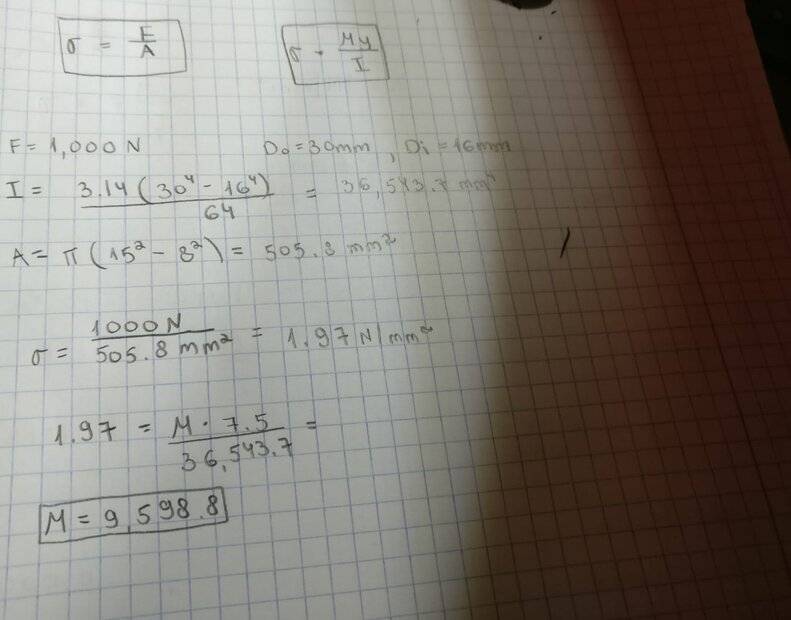 σ = F/A
σ = My/I
F = 1,000 N    Do = 30mm , Di = 16mm
I = 3.14 (30⁴ - 16⁴)/64 = 36,543.7 mm⁴
A = π (15² - 8²) = 505.8 mm²
σ = 1000 N/505.8 mm² = 1.97 N/mm²
1.97 = M · 7.5/36,543.7 =
M = 9,598.8